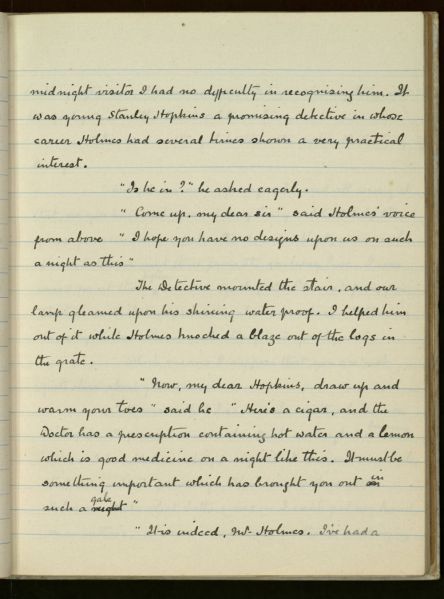 midnight visitor I had no difficulty in recognising him. It
was young Stanley Hopkins a promising detective in whose
career Holmes had several times shown a very practical
interest.
"Is he in?" he asked eagerly.
"Come up, my dear sir" said Holmes' voice
from above "I hope you have no designs upon us on such
a night as this"
The Detective mounted the stair, and our
lamp gleamed upon his shining water proof. I helped him
out of it while Holmes knocked a blaze out of the logs in
the grate.
"Now, my dear Hopkins, draw up and
warm your toes" said he "Here's a cigar, and the
Doctor has a prescription containing hot water and a lemon
which is good medicine on a night like this. It must be
something important which has brought you out on in
such a night gale"
"It is indeed, Mr Holmes. I've had a